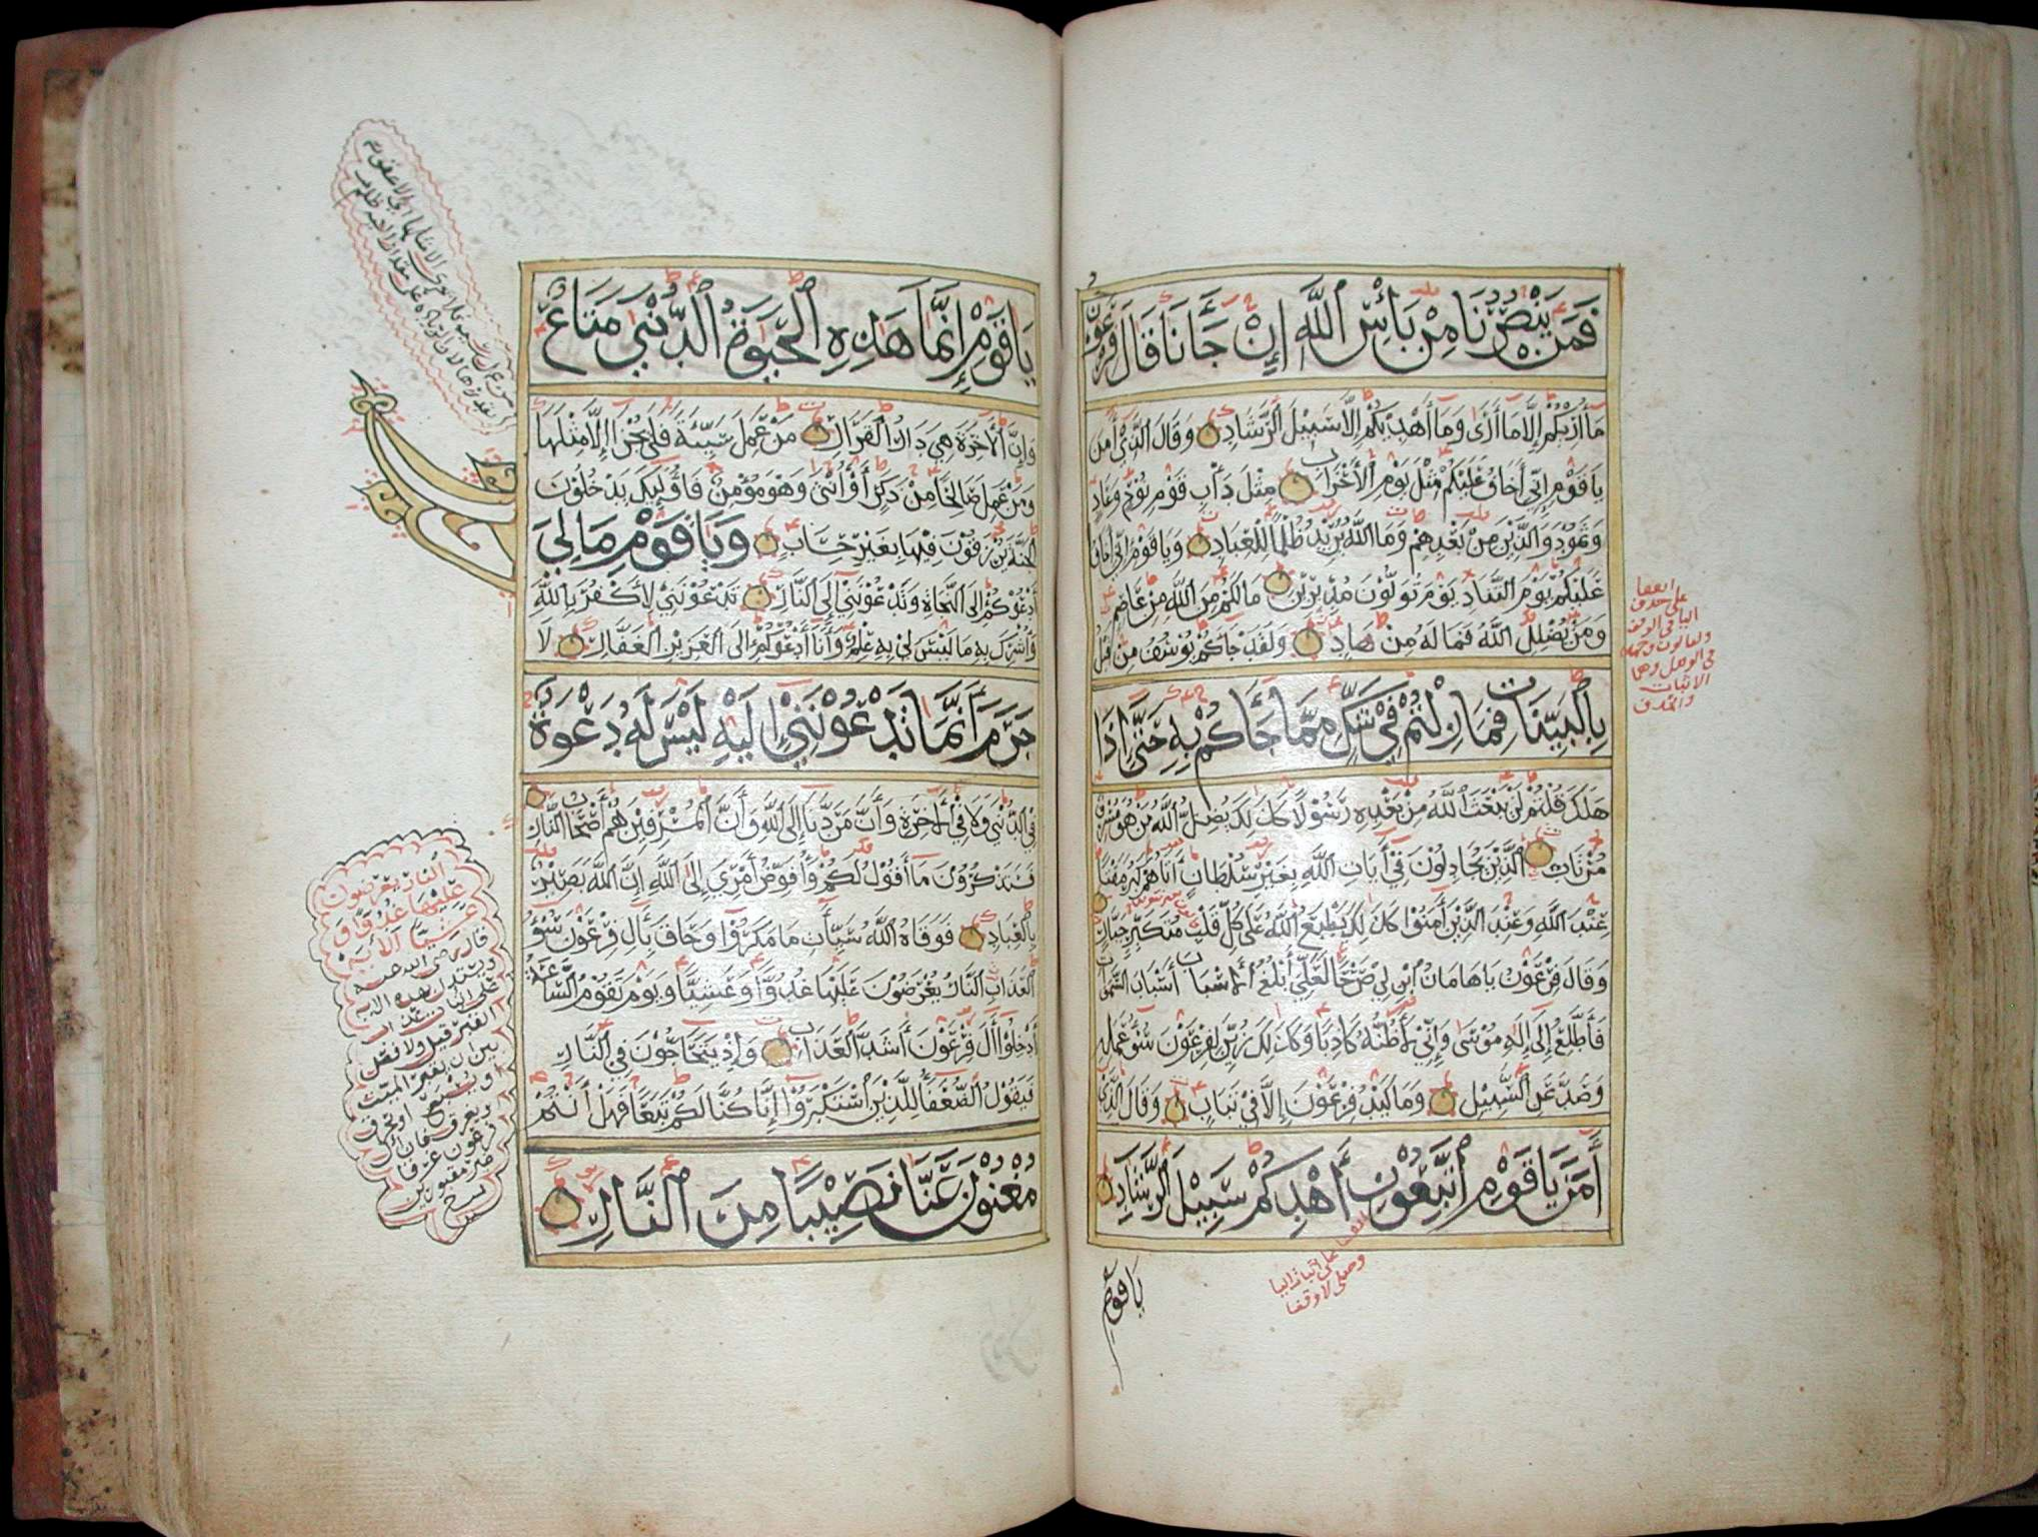 فَمَن يَنْصُرُنَا مِنْ بَأْسِ اللَّهِ إِنْ جَآءَنَا قَالَ فِرْعَوْنُ
مَا أُرِيكُمْ إِلَّا مَا أَرَى وَمَا أَهْدِيكُمْ إِلَّا سَبِيلَ الرَّشَادِ وَقَالَ الَّذِي آمَنَ
يَا قَوْمِ إِنِّي أَخَافُ عَلَيْكُمْ مِثْلَ يَوْمِ الْأَحْزَابِ مِثْلَ دَأْبِ قَوْمِ نُوحٍ وَعَادٍ
وَثَمُودَ وَالَّذِينَ مِنْ بَعْدِهِمْ وَمَا اللَّهُ يُرِيدُ ظُلْمًا لِلْعِبَادِ وَيَا قَوْمِ إِنِّي أَخَافُ
عَلَيْكُمْ يَوْمَ التَّنَادِ يَوْمَ تُوَلُّونَ مُدْبِرِينَ مَا لَكُمْ مِنَ اللَّهِ مِنْ عَاصِمٍ
وَمَنْ يُضْلِلِ اللَّهُ فَمَا لَهُ مِنْ هَادٍ وَلَقَدْ جَآءَكُمْ يُوسُفُ مِنْ قَبْلُ
بِالْبَيِّنَاتِ فَمَا زِلْتُمْ فِي شَكٍّ مِمَّا جَآءَكُمْ بِهِ حَتَّى إِذَا
هَلَكَ قُلْتُمْ لَنْ يَبْعَثَ اللَّهُ مِنْ بَعْدِهِ رَسُولًا كَذَلِكَ يُضِلُّ اللَّهُ مَنْ هُوَ مُسْرِفٌ
مُرْتَابٌ الَّذِينَ يُجَادِلُونَ فِي آيَاتِ اللَّهِ بِغَيْرِ سُلْطَانٍ أَتَاهُمْ كَبُرَ مَقْتًا
عِنْدَ اللَّهِ وَعِنْدَ الَّذِينَ آمَنُوا كَذَلِكَ يَطْبَعُ اللَّهُ عَلَى كُلِّ قَلْبِ مُتَكَبِّرٍ جَبَّارٍ
وَقَالَ فِرْعَوْنُ يَا هَامَانُ ابْنِ لِي صَرْحًا لَعَلِّي أَبْلُغُ الْأَسْبَابَ أَسْبَابَ السَّمَوَاتِ
فَأَطَّلِعُ إِلَى إِلَهِ مُوسَى وَإِنِّي لَأَظُنُّهُ كَاذِبًا وَكَذَلِكَ زُيِّنَ لِفِرْعَوْنَ سُوءُ عَمَلِهِ
وَصُدَّ عَنِ السَّبِيلِ وَمَا كَيْدُ فِرْعَوْنَ إِلَّا فِي تَبَابٍ وَقَالَ الَّذِي
آمَنَ يَا قَوْمِ اتَّبِعُونِ أَهْدِكُمْ سَبِيلَ الرَّشَادِ
يَا قَوْمِ
على حذف
الاثبات
والحذف
وصلى لا وقفا
يَا قَوْمِ إِنَّمَا هَذِهِ الْحَيَوةُ الدُّنْيَى مَتَاعٌ
وَإِنَّ الْآخِرَةَ هِيَ دَارُ الْقَرَارِ مَنْ عَمِلَ سَيِّئَةً فَلَا يُجْزَى إِلَّا مِثْلَهَا
وَمَنْ عَمِلَ صَالِحًا مِنْ ذَكَرٍ أَوْ أُنْثَى وَهُوَ مُؤْمِنٌ فَأُولَئِكَ يَدْخُلُونَ
الْجَنَّةَ يُرْزَقُونَ فِيهَا بِغَيْرِ حِسَابٍ وَيَا قَوْمِ مَا لِيَ
أَدْعُوكُمْ إِلَى النَّجَاةِ وَتَدْعُونَنِي إِلَى النَّارِ تَدْعُونَنِي لِأَكْفُرَ بِاللَّهِ
وَأُشْرِكَ بِهِ مَا لَيْسَ لِي بِهِ عِلْمٌ وَأَنَا أَدْعُوكُمْ إِلَى الْعَزِيزِ الْغَفَّارِ لَا
جَرَمَ أَنَّمَا تَدْعُونَنِي إِلَيْهِ لَيْسَ لَهُ دَعْوَةٌ
فِي الدُّنْيَى وَلَا فِي الْآخِرَةِ وَأَنَّ مَرَدَّنَا إِلَى اللَّهِ وَأَنَّ الْمُسْرِفِينَ هُمْ أَصْحَابُ النَّارِ
فَسَتَذْكُرُونَ مَا أَقُولُ لَكُمْ وَأُفَوِّضُ أَمْرِي إِلَى اللَّهِ إِنَّ اللَّهَ بَصِيرٌ
بِالْعِبَادِ فَوَقَاهُ اللَّهُ سَيِّآتِ مَا مَكَرُوا وَحَاقَ بِآلِ فِرْعَوْنَ سُوءُ
الْعَذَابِ النَّارُ يُعْرَضُونَ عَلَيْهَا غُدُوًّا وَعَشِيًّا وَيَوْمَ تَقُومُ السَّاعَةُ
أَدْخِلُوا آلَ فِرْعَوْنَ أَشَدَّ الْعَذَابِ وَإِذْ يَتَحَاجُّونَ فِي النَّارِ
فَيَقُولُ الضُّعَفَآءُ لِلَّذِينَ اسْتَكْبَرُوا إِنَّا كُنَّا لَكُمْ تَبَعًا فَهَلْ أَنْتُمْ
مُغْنُونَ عَنَّا نَصِيبًا مِنَ النَّارِ
النار يعرضون
عليها غدوا و
عشيا الآية
قال رضى الله عنه
ويستدل بهذه الآية
على ان عذاب
القبر قيل ولا فصل
بين ان يقبر الميت